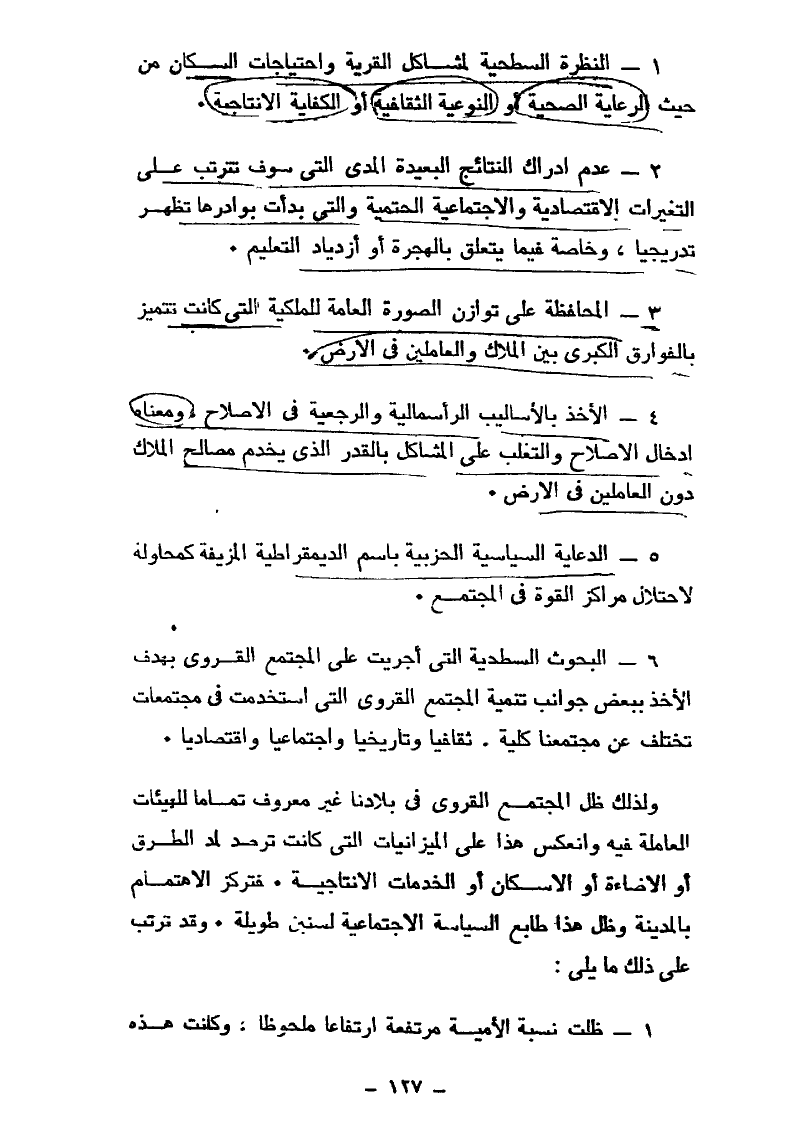 ١ — النظرة السطحية لمشاكل القرية واحتياجات السكان من
حيث الرعاية الصحية أو النوعية الثقافية أو الكفاية الانتاجية ٠
٢ — عدم ادراك النتائج البعيدة المدى التى سوف تترتب على
التغيرات الاقتصادية والاجتماعية الحتمية والتي بدأت بوادرها تظهر
تدريجيا ، وخاصة فيما يتعلق بالهجرة أو أزدياد التعليم ٠
٣ — المحافظة على توازن الصورة العامة للملكية التى كانت تتميز
بالفوارق الكبرى بين الملاك والعاملين فى الارض ٠
٤ — الأخذ بالأساليب الرأسمالية والرجعية فى الاصلاح ، ومعناه
ادخال الاصلاح والتغلب على المشاكل بالقدر الذى يخدم مصالح الملاك
دون العاملين فى الارض ٠
٥ — الدعاية السياسية الحزبية باسم الديمقراطية المزيفة كمحاولة
لاحتلال مراكز القوة فى المجتمع ٠
٦ — البحوث السطحية التى أجريت على المجتمع القروى بهدف
الأخذ ببعض جوانب تنمية المجتمع القروى التى استخدمت فى مجتمعات
تختلف عن مجتمعنا كلية . ثقافيا وتاريخيا واجتماعيا واقتصاديا ٠
ولذلك ظل المجتمع القروى فى بلادنا غير معروف تماما للهيئات
العاملة فيه وانعكس هذا على الميزانيات التى كانت ترصد لمد الطرق
أو الاضاءة أو الاسكان أو الخدمات الانتاجية ٠ فتركز الاهتمام
بالمدينة وظل هذا طابع السياسة الاجتماعية لسنين طويلة ٠ وقد ترتب
على ذلك ما يلى :
١ — ظلت نسبة الأمية مرتفعة ارتفاعا ملحوظا ، وكانت هذه
— ١٢٧ —